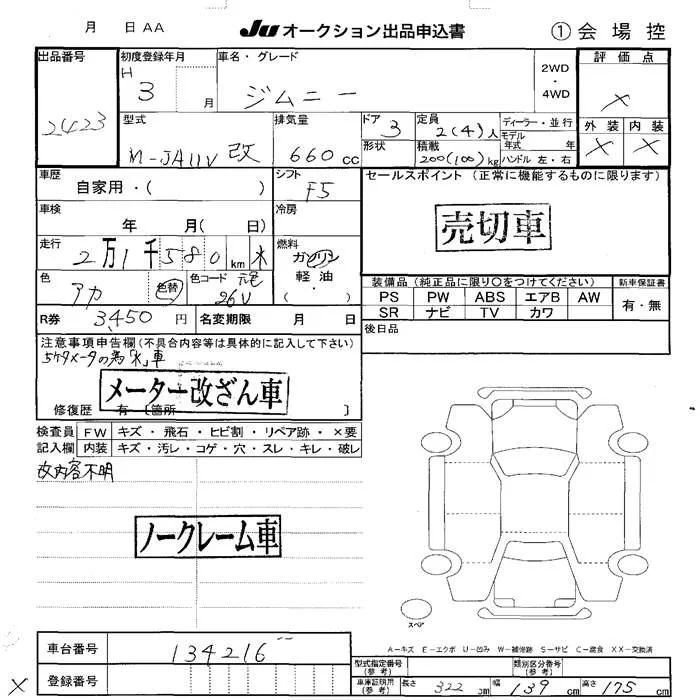 月 日 AA JU オークション出品申込書 ① 会場控
出品番号 初度登録年月 車名・グレード 2WD・4WD 評価点
2423 H 3 月 ジムニー ×
型式 排気量 ドア 定員 ディーラー・並行 外装 内装
M-JA11V 改 660cc 3 2(4)人 モデル年式 年 × ×
形状 積載 200(100)kg ハンドル 左・右
車歴 自家用・( ) シフト F5 セールスポイント (正常に機能するものに限ります)
車検 年 月( 日) 冷房 売切車
走行 2万1千580km 燃料 ガソリン・軽油・
色 アカ 色替 色コード 元色 26U
装備品 (純正品に限り○をつけてください) 新車保証書
PS PW ABS エアB AW 有・無
SR ナビ TV カワ
R券 3450円 名変期限 月 日 後日品
注意事項申告欄 (不具合内容等は具体的に記入して下さい)
5ケタメータの為「水」車
メーター改ざん車
修復歴 有 〔箇所 〕
検査員 FW キズ・飛石・ヒビ割・リペア跡・×要
記入欄 内装 キズ・汚レ・コゲ・穴・スレ・キレ・破レ
改内容不明
ノークレーム車
スペア
A-キズ E-エクボ U-凹み W-補修跡 S-サビ C-腐食 XX-交換済
車台番号 134216 型式指定番号(参考) 類別区分番号(参考)
× 登録番号 車庫証明用(参考) 長さ 322cm 幅 139cm 高さ 175cm